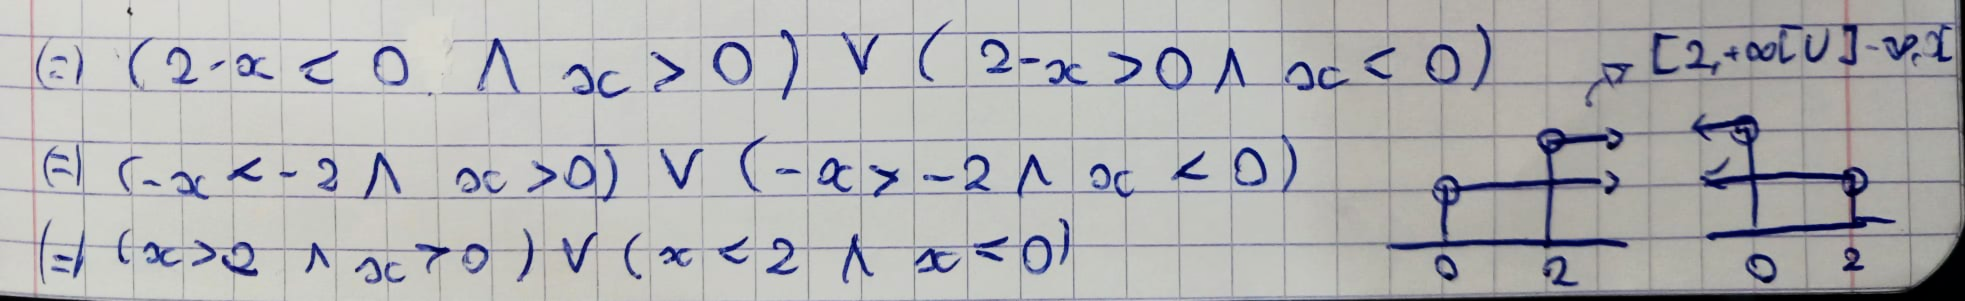 (=) (2-x < 0 ∧ x > 0) ∨ (2-x > 0 ∧ x < 0)
[2,+∞[ U ]-∞,
(=) (-x < -2 ∧ x > 0) ∨ (-x > -2 ∧ x < 0)
(=) (x > 2 ∧ x > 0) ∨ (x < 2 ∧ x < 0)
0 2 0 2